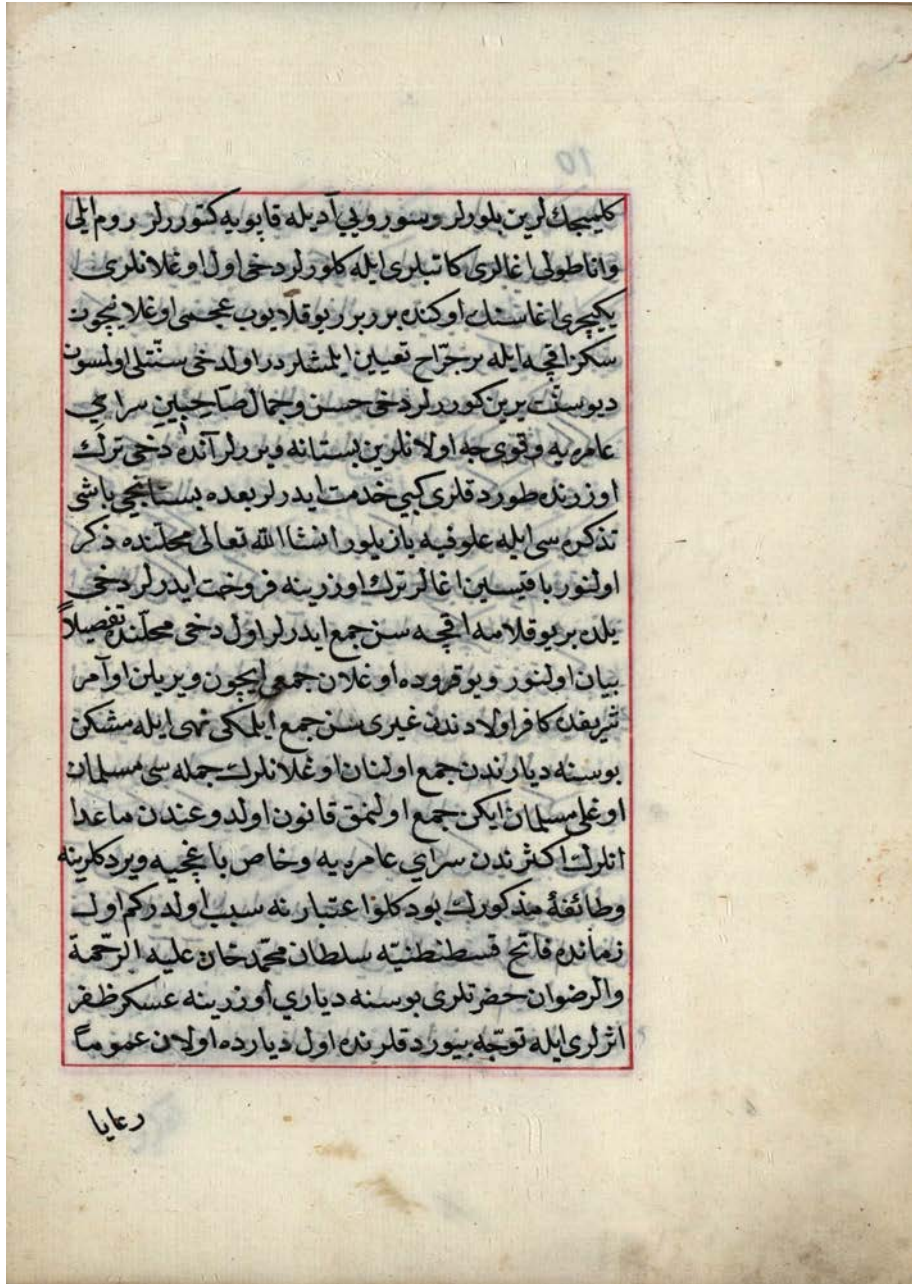 كليسجك لرين بلورلر وسوروبي آديله قاپويه كتوررلر روم ايلى
واناطولى اغالرى كاتبلرى ايله كلورلر دخى اول اوغلانلرى
يكيچرى اغاسنك اوكنده برر برر يوقلايوب عجمى اوغلانيچون
سكز اقچه ايله بر جرّاح تعيين ايلمشلردر اولدخى سنّتلى اولمسون
ديو سنّت يرين كوررلر دخى حسن وجمال صاحبين سراي
عامره يه وقوى جه اولانلرين بستانه ويررلر آنده دخى ترك
اوزرنده طوردقلرى كبى خدمت ايدرلر بعده بستانجى باشى
تذكره سى ايله علوفيه يازيلور انشاالله تعالى محلّنده ذكر
اولنور باقيسين اغالر ترك اوزرينه فروخت ايدرلر دخى
يلده بر يوقلامه اقچه سن جمع ايدرلر اول دخى محلّنده تفصيلاً
بيان اولنور ويوقروده اوغلان جمعى ايچون ويريلن اوامر
شريفده كافر اولادندن غيرى سن جمع ايلمكى نهى ايله مشكن
بوسنه ديارندن جمع اولنان اوغلانلرك جمله سى مسلمان
اوغلى مسلمان ايكن جمع اولنمق قانون اولدوغندن ماعدا
انلرك اكثرندن سراي عامره يه وخاص باغچيه ويردكلرينه
وطائفۀ مذكورك بودكلو اعتبارنه سبب اولدركم اول
زمانده فاتح قسطنطنيّه سلطان محمّد خان عليه الرّحمة
والرضوان حضرتلرى بوسنه دياري اوزرينه عسكر ظفر
اثرلرى ايله توجّه بيوردقلرنده اول ديارده اولان عموماً
رعايا